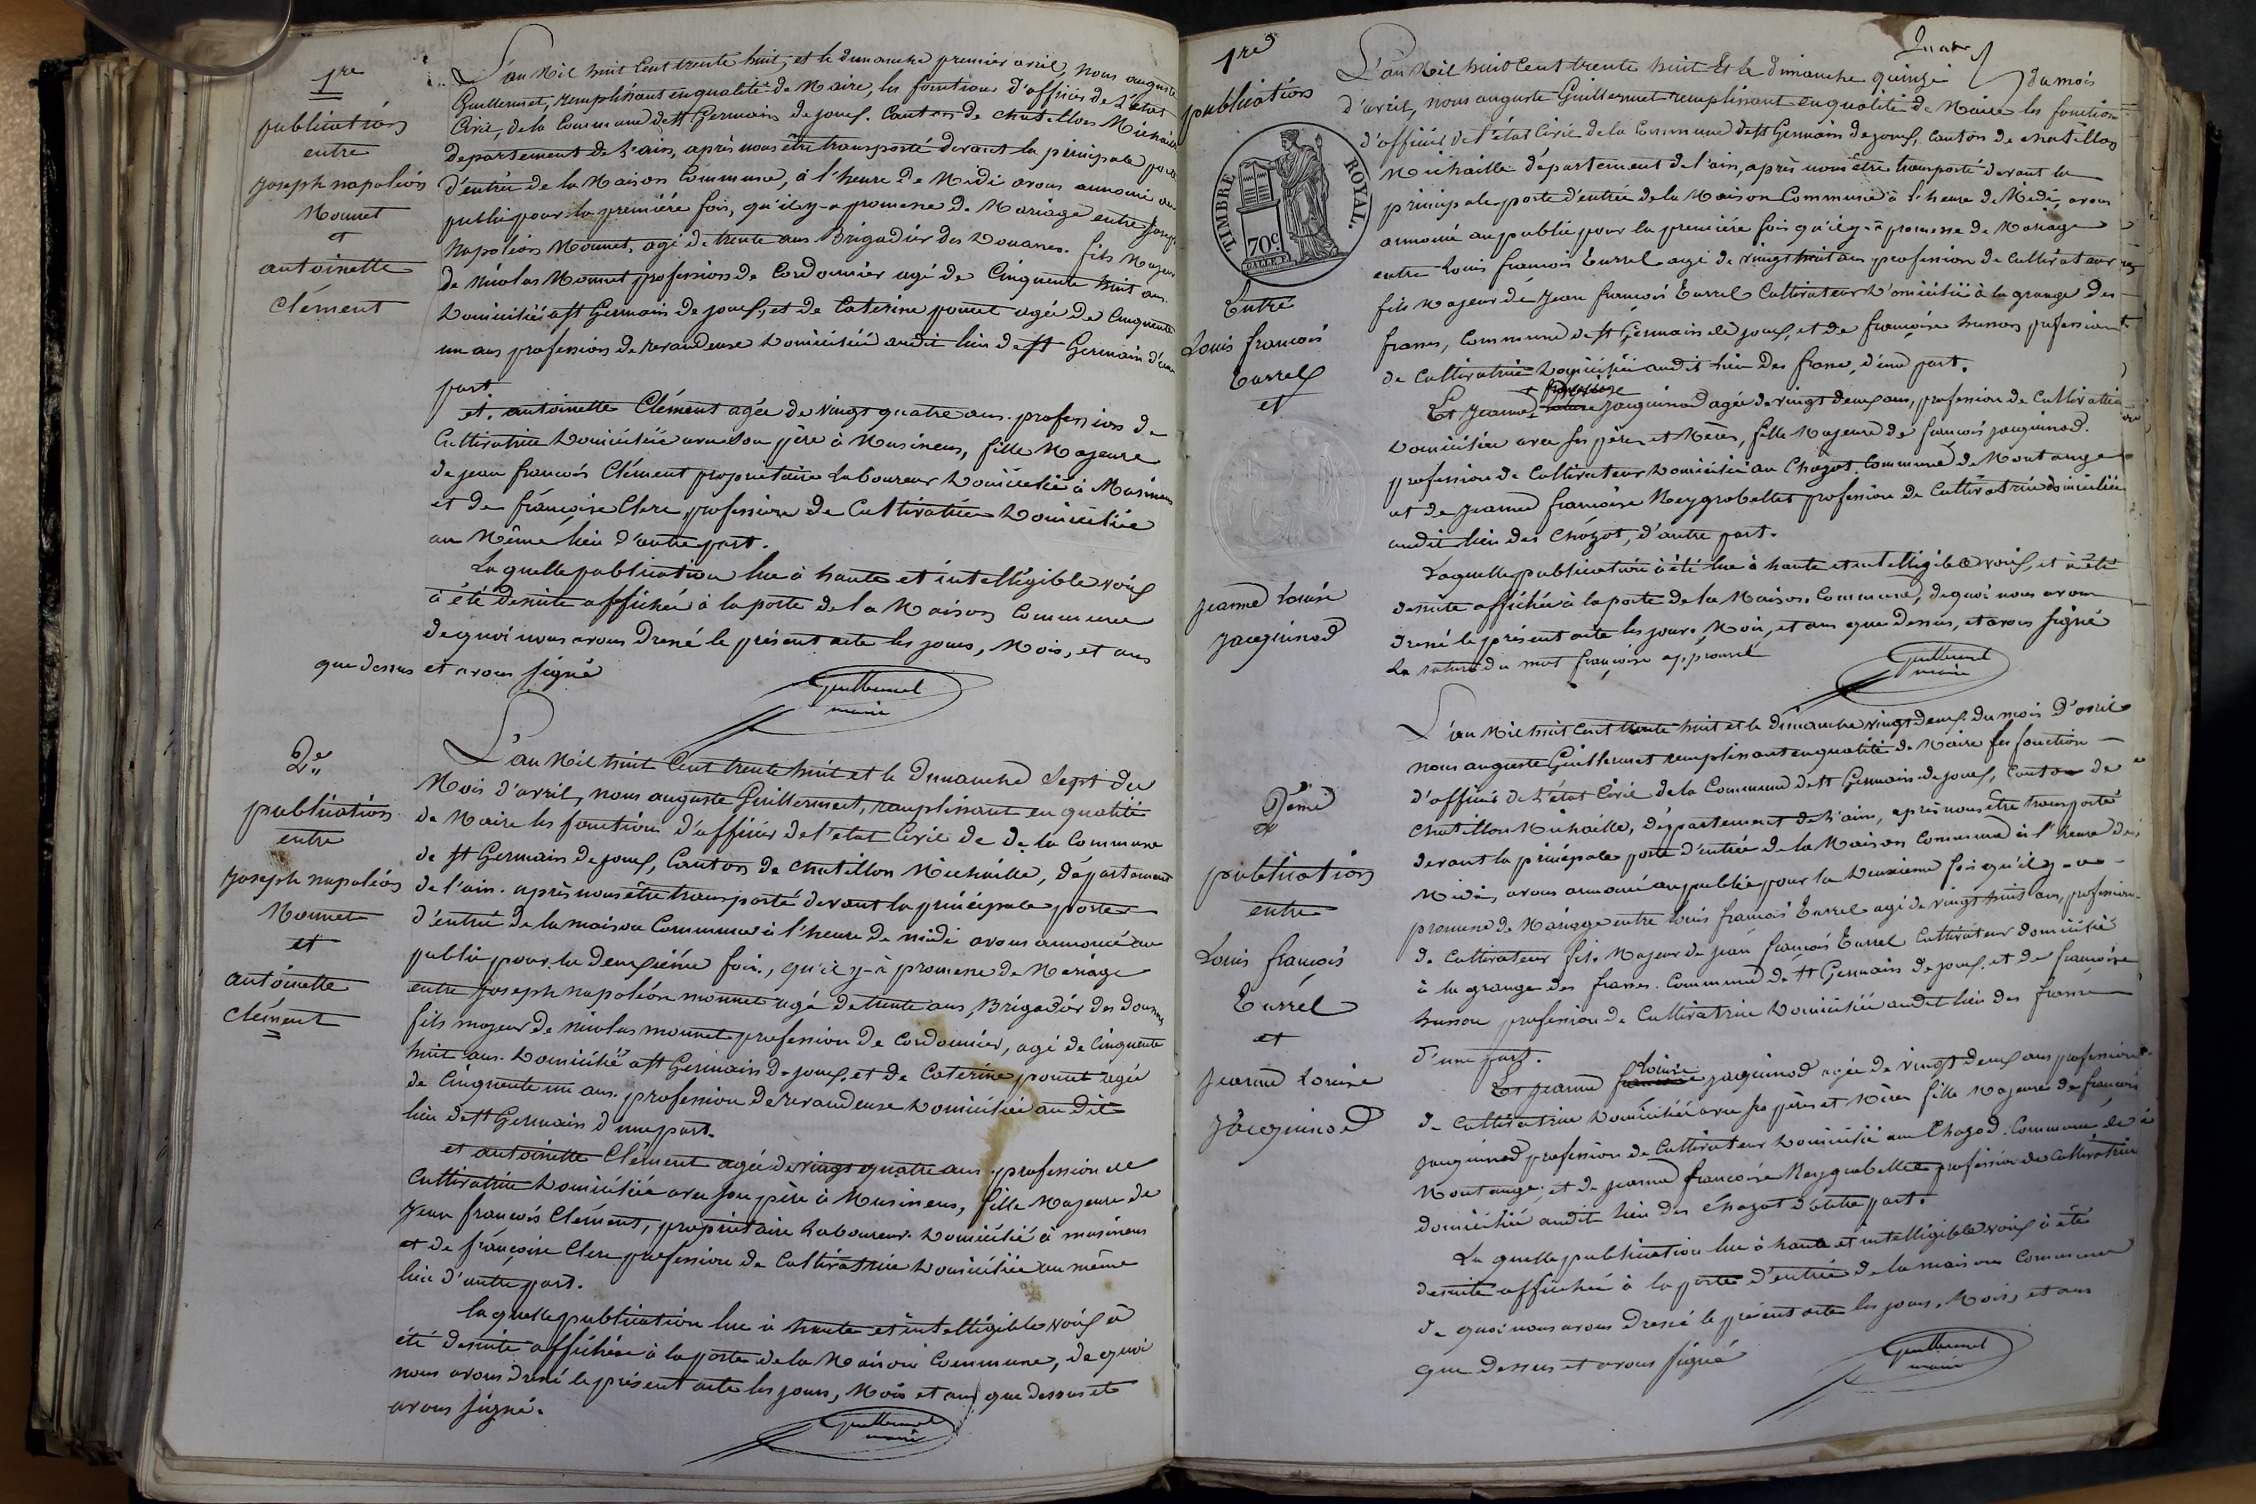 1re
publication
entre
joseph napoléon
Monnet
et
antoinette
Clément
L'an Mil huit Cent trente huit, et le dimanche premier avril, nous auguste
Guillermet, remplissant en qualité de Maire, les fonctions d'officier de l'état
Civil, de la Commune de St Germain de joux, Canton de chatillon Michaille
departement de l'ain, après nous être transporté devant la principale porte
d'entrée de la Maison Commune, à l'heure de Midi avons annoncé au
public pour la première fois, qu'il y-a promesse de Mariage entre joseph
Napoléon Monnet, agé de trente ans Brigadier des Douanes. fils Majeur
de Nicolas Monnet profession de Cordonnier agé de Cinquante huit ans.
Domicilié à St Germain de joux, et de Caterine poncet agée de Cinquante
un ans profession de revandeuse Domiciliée audit lieu de St Germain d'une
part.
et. antoinette Clément agée de vingt quatre ans. profession de
Cultivatrice Domiciliée avec son père à Musinens, fille Majeure
de jean francois Clément propriétaire Laboureur Domicilié à Musinens
et de françoise Clerc profession de Cultivatrice Domiciliée
au Même lieu d'autre part.
La quelle publication lue à haute et intelligible voix
à été desuite affichée à la porte de la Maison Commune
de quoi nous avons Dressé le présent acte les jours, Mois, et ans
que dessus et avons signé
Guillermet
maire
2e
publication
entre
joseph napoléon
Monnet
et
antoinette
Clément
L'an Mil huit Cent trente huit et le Dimanche Sept du
Mois d'avril, nous auguste Guillermet, remplissant en qualité
de Maire les fonctions d'officier de l'etat Civil de de la Commune
de St Germain de joux, Canton de chatillon Michaille, département
de l'ain. après nous être transporté devant la principale porte
d'entrée de la maison Commune à l'heure de midi avons annoncé au
public pour la deuxième fois, qu'il y-à promesse de Mariage
entre joseph napoléon monnet agé de trente ans Brigadier des douanes
fils majeur de nicolas monnet profession de Cordonnier, agé de Cinquante
huit ans. Domicilié à St Germain de joux, et de Caterine poncet agée
de Cinquante un ans. profession de revandeuse Domiciliée au dit
lieu de St Germain d'une part.
et antoinette Clément agée de vingt quatre ans. profession de
Cultivatrice Domiciliée avec son père à Musinens, fille Majeure de
Jean françois Clément, propriétaire Laboureur. Domicilié à musinens
et de françoise Clerc profession de Cultivatrice Domiciliée au même
lieu d'autre part.
la quelle publication lue à haute et intelligible voix a
été desuite affichée à la porte de la Maison Commune, de quoi
nous avons dressé le présent acte les jours, Mois et ans que dessus et
avons signé.
Guillermet
maire
1re
publication
TIMBRE ROYAL.
70c
Entre
Louis francois
Eurrel
et
jeanne Louise
jacquinod
L'an Mil huit Cent trente huit Et le dimanche quinze du mois
d'avril, nous auguste Guillermet remplissant en qualité de Maire les fonctions
d'officier de l'état Civil de la Commune de St Germain de joux, canton de chatillon
Michaille département de l'ain, après nous être transporté devant la
principale porte d'entrée de la Maison Commune à l'heure de Midi, avons
annoncé au public pour la première fois qu'il y-a promesse de Mariage
entre Louis françois Eurrel agé de vingt huit ans profession de Cultivateur
fils Majeur de Jean françois Eurrel Cultivateur Domicilié à la grange des
frasses, Commune de St Germain de joux, et de françoise husson profession
de Cultivatrice Domiciliée audit lieu des frasses, d'une part.
françoise
Et Jeanne jacquinod agée de vingt deux ans, profession de Cultivatrice
Domiciliée avec ses père et Mère, fille Majeure de francois jacquinod.
profession de Cultivateur Domicilié au Chozot Commune de Montange
et de jeanne françoise Neygrobellet profession de Cultivatrice domiciliée
audit lieu des Chozot, d'autre part.
Laquelle publication à été lue à haute et intelligible voix, et à été
desuite affichée à la porte de la Maison Commune, de quoi nous avons
dressé le présent acte les jours. Mois, et ans que dessus, et avons signé
La rature du mot françoise approuvé
Guillermet
maire
2ème
publication
entre
Louis françois
Eurrel
et
jeanne Louise
jacquinod
L'an Mil huit Cent trente huit et le dimanche vingt deux du mois d'avril
nous auguste Guillermet remplissant en qualité de Maire les fonction
d'officier de l'état Civil de la Commune de St Germain de joux, Canton de
chatillon Michaille, département de l'ain, après nous être transporté
devant la principale porte d'entrée de la Maison Commune à l'heure de
Midi, avons annoncé au public pour la Deuxieme fois qu'il y-a
promesse de Mariage entre Louis françois Eurrel agé de vingt huit ans, profession
de Cultivateur fils Majeur de jean françois Eurrel Cultivateur domicilié
à la grange des frasses. Commune de St Germain de joux. et de françoise
husson profession de Cultivatrice Domiciliée audit lieu des frasses
d'une part.
Louise
Et jeanne francoise jaquinod agée de vingt deux ans profession
de Cultivatrice Domiciliée avec ses père et Mère fille Majeure de françois
jaquinod profession de Cultivateur Domicilié au Chozod. Commune de
Montange, et de jeanne françoise Neygrobellet profession de Cultivatrice
domiciliée audit lieu des Chozot d'autre part.
La quelle publication lue à haute et intelligible voix à été
desuite affichée à la porte d'entrée de la maison Commune
de quoi nous avons Dressé le présent acte les jours, Mois, et ans
que dessus et avons signé
Guillermet
maire